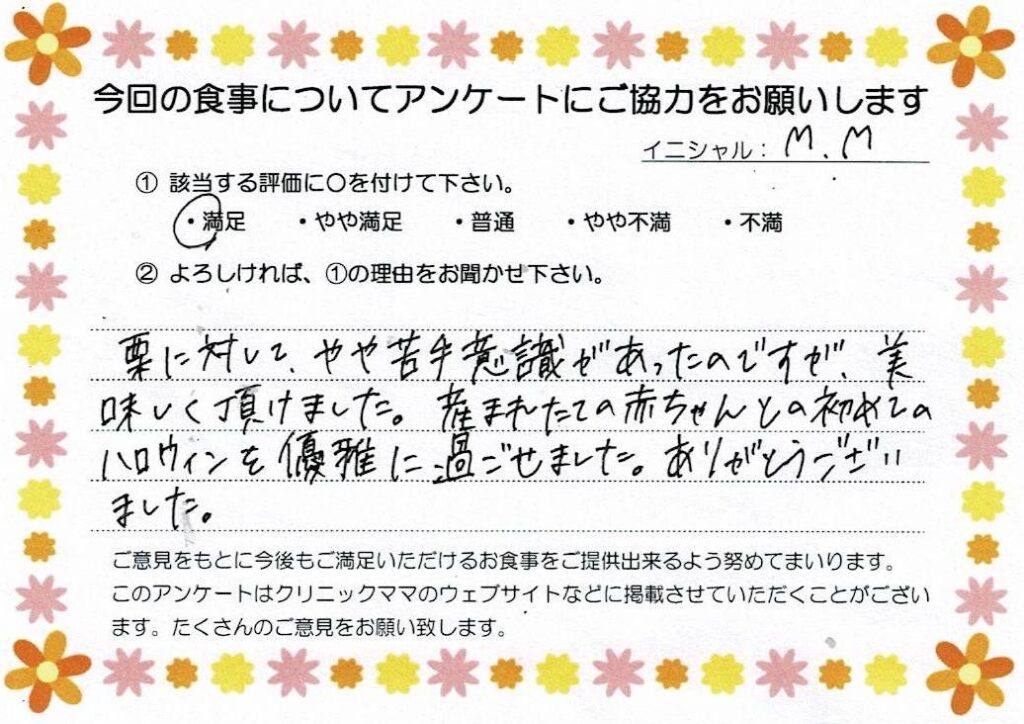 今回の食事についてアンケートにご協力をお願いします
イニシャル: M.M
① 該当する評価に〇を付けて下さい。
・満足 ・やや満足 ・普通 ・やや不満 ・不満
② よろしければ、①の理由をお聞かせ下さい。
栗に対して、やや苦手意識があったのですが、美
味しく頂けました。産まれたての赤ちゃんとの初めての
ハロウィンを優雅に過ごせました。ありがとうござい
ました。
ご意見をもとに今後もご満足いただけるお食事をご提供出来るよう努めてまいります。
このアンケートはクリニックママのウェブサイトなどに掲載させていただくことがござい
ます。たくさんのご意見をお願い致します。